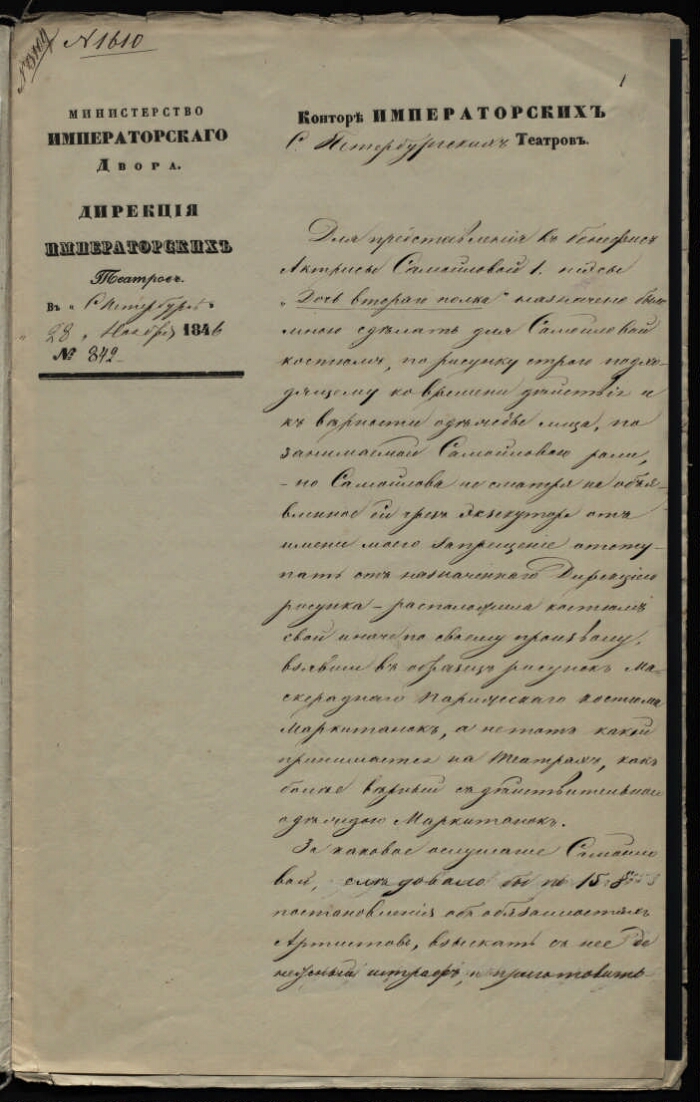 N 1610
1
МИНИСТЕРСТВО
ИМПЕРАТОРСКАГО
ДВОРА.
ДИРЕКЦІЯ
ИМПЕРАТОРСКИХЪ
Театров.
Въ „ С Петербургѣ „
„ 28 „ Ноября 1846
№ 842
Конторѣ ИМПЕРАТОРСКИХЪ
С. Петербургскихъ Театровъ.
Для представленія въ бенефисъ
Актрисы Самойловой 1. піесы
„Дочь втораго полка" назначено было
мною сдѣлать для Самойловой
костюмъ, по рисунку строго подхо-
дящему ко времени дѣйствія и
къ вѣрности одежды лица, по
занимаемой Самойловою роли,
- но Самойлова не смотря на объя-
вленное ей чрезъ Экзекутора отъ
имени моего запрещеніе отсту-
пать отъ назначеннаго Дирекціею
рисунка - расположила костюмъ
свой иначе по своему произволу,
взявши въ образецъ рисунокъ Ма-
скераднаго Парижскаго костюма
Маркитанокъ, а не тотъ какой
принимается на Театрахъ, какъ
болѣе вѣрный съ дѣйствительною
одеждою Маркитанокъ.
За каковое ослушаніе Самойло-
вой, слѣдовало бы по 15
постановленія объ обязанностяхъ
Артистовъ, взыскать съ нее де
нежный штрафъ, и приготовить